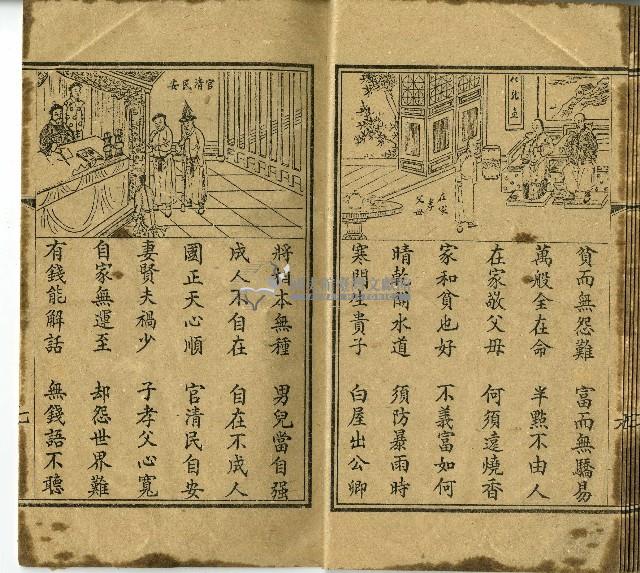 在家孝父母
貧而無怨難　富而無驕易
萬般全在命　半點不由人
在家敬父母　何須遠燒香
家和貧也好　不義富如何
晴乾開水道　須防暴雨時
寒門生貴子　白屋出公卿
官清民安
將相本無種　男兒當自强
成人不自在　自在不成人
國正天心順　官清民自安
妻賢夫禍少　子孝父心寬
自家無運至　却怨世界難
有錢能解話　無錢語不聽